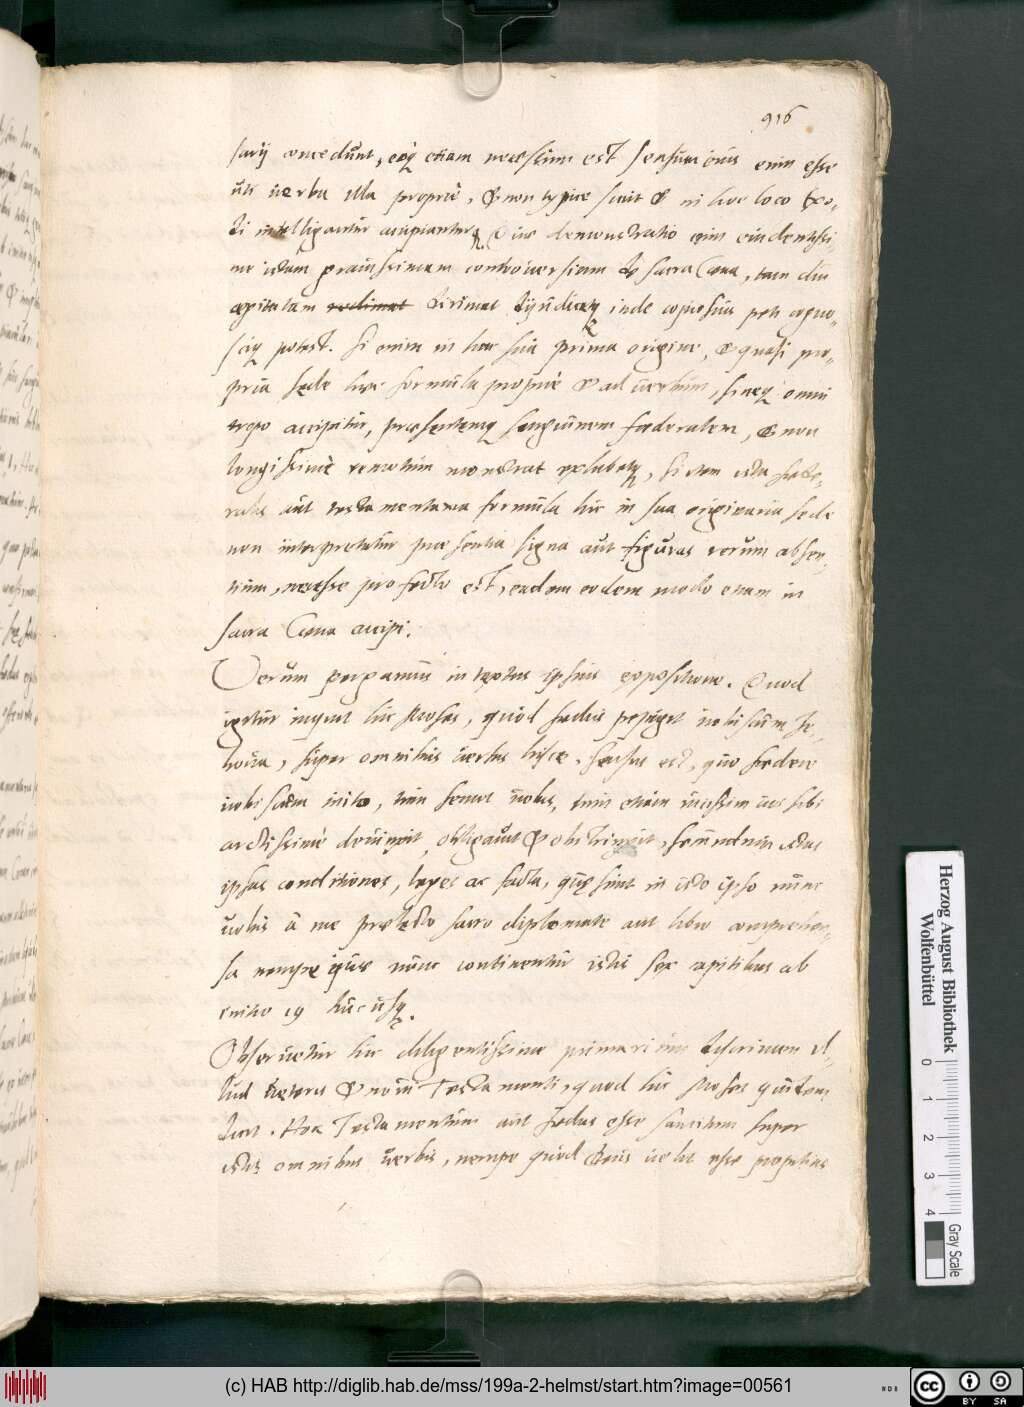 916
sarij concedunt, eoq; etiam necessium est sensum omnis enim esse
uti uerba illa propriè, & non typice sunt & in hoc loco Exo-
di intelligantur accipiantur. Cuius demonstratio enim euidentissi
me istam grauissimam controuersiam de sacra Cœna, tam diu
agitatam dirimat dijudicetq; inde copiosius peti cogno-
sciq; potest. Si enim in hac sua prima origine, & quasi pro-
pria sede hæc formula propriè & ad uerbum, sineq; omni
tropo accipitur, præsentemq; sanguinem fœderalem, & non
longissimè remotum monstrat exhibetq;, si item ista fœde-
ralis aut testamentaria formula hic in sua originaria sede
non interpretatur præsentia signa aut figuras rerum absen-
tium, necesse profectò est, eadem eodem modo etiam in
sacra Cœna accipi.
Verum pergamus in textus ipsius expositione. Quod
igitur inquit hic Moses, quòd fœdus pepigit uobiscum Je-
houa, super omnibus uerbis hisce. Sensus est, quo fœdere
uobiscum inito, tum semet uobis, tum etiam uicissim uos sibi
arctissimè deuinxit, obligauit & obstrinxit, secundum istas
ipsas conditiones, leges ac facta, quę sunt in isto ipso nunc
uobis à me prælecto sacro diplomate aut libro comprehen-
sa nempe quæ nunc continentur istis sex capitibus ab
initio 19 hucusq;.
Obseruetur hic diligentissime primarium discrimen il-
lud ueteris & noui Testamenti, quod hic Moses quidem
dicit. Hoc Testamentum aut fœdus esse sancitum super
istis omnibus uerbis, nempe quòd Deus uelit esse propitius
Herzog August Bibliothek
Wolfenbüttel
0 1 2 3 4
Gray Scale
(c) HAB http://diglib.hab.de/mss/199a-2-helmst/start.htm?image=00561
cc BY SA